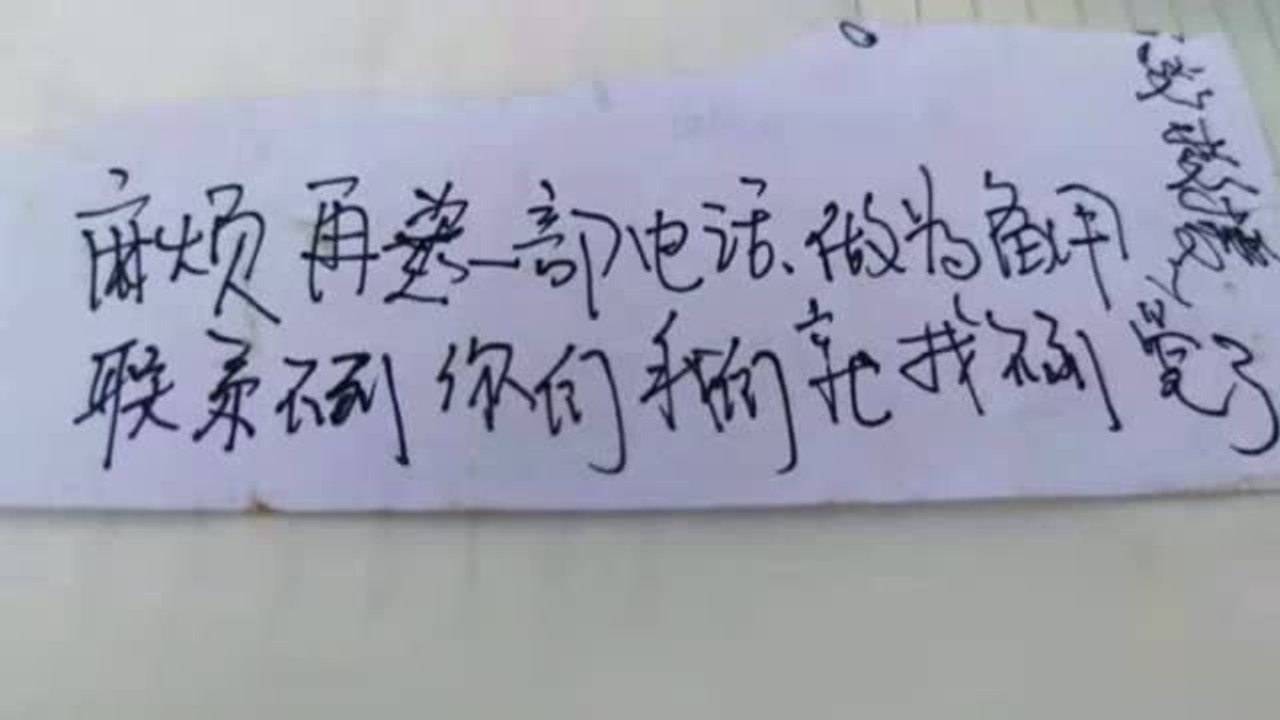 麻烦再装一部电话、做为备用
联系不到你们我们就找不到管了